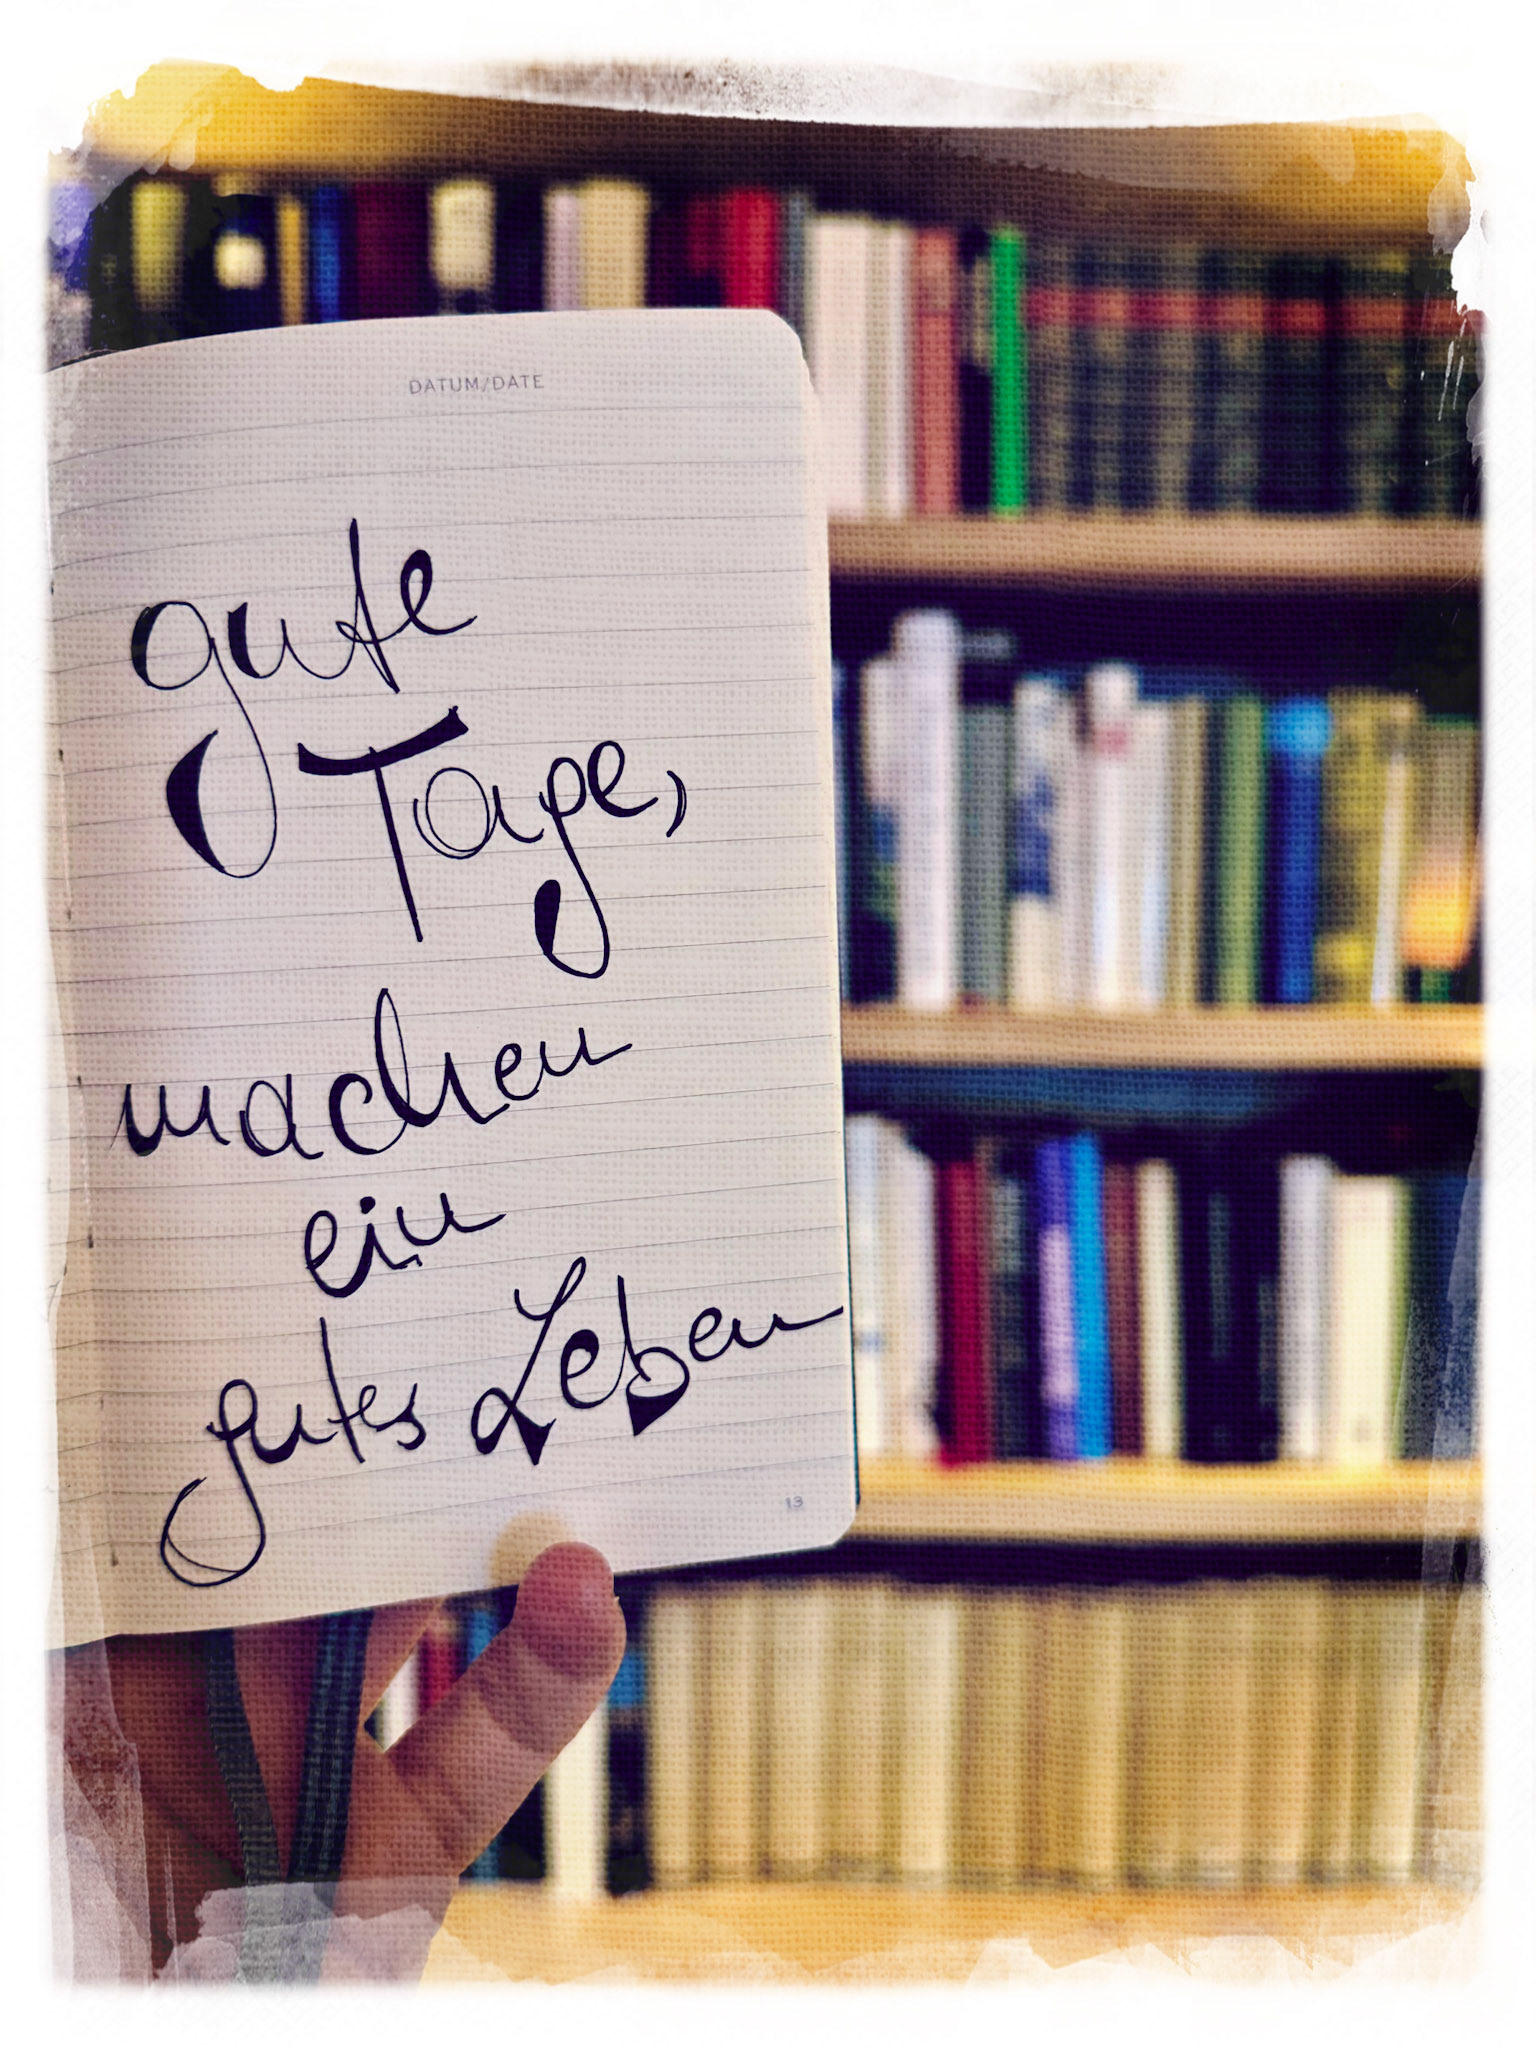 DATUM/DATE
gute
Tage,
machen
ein
gutes Leben
13